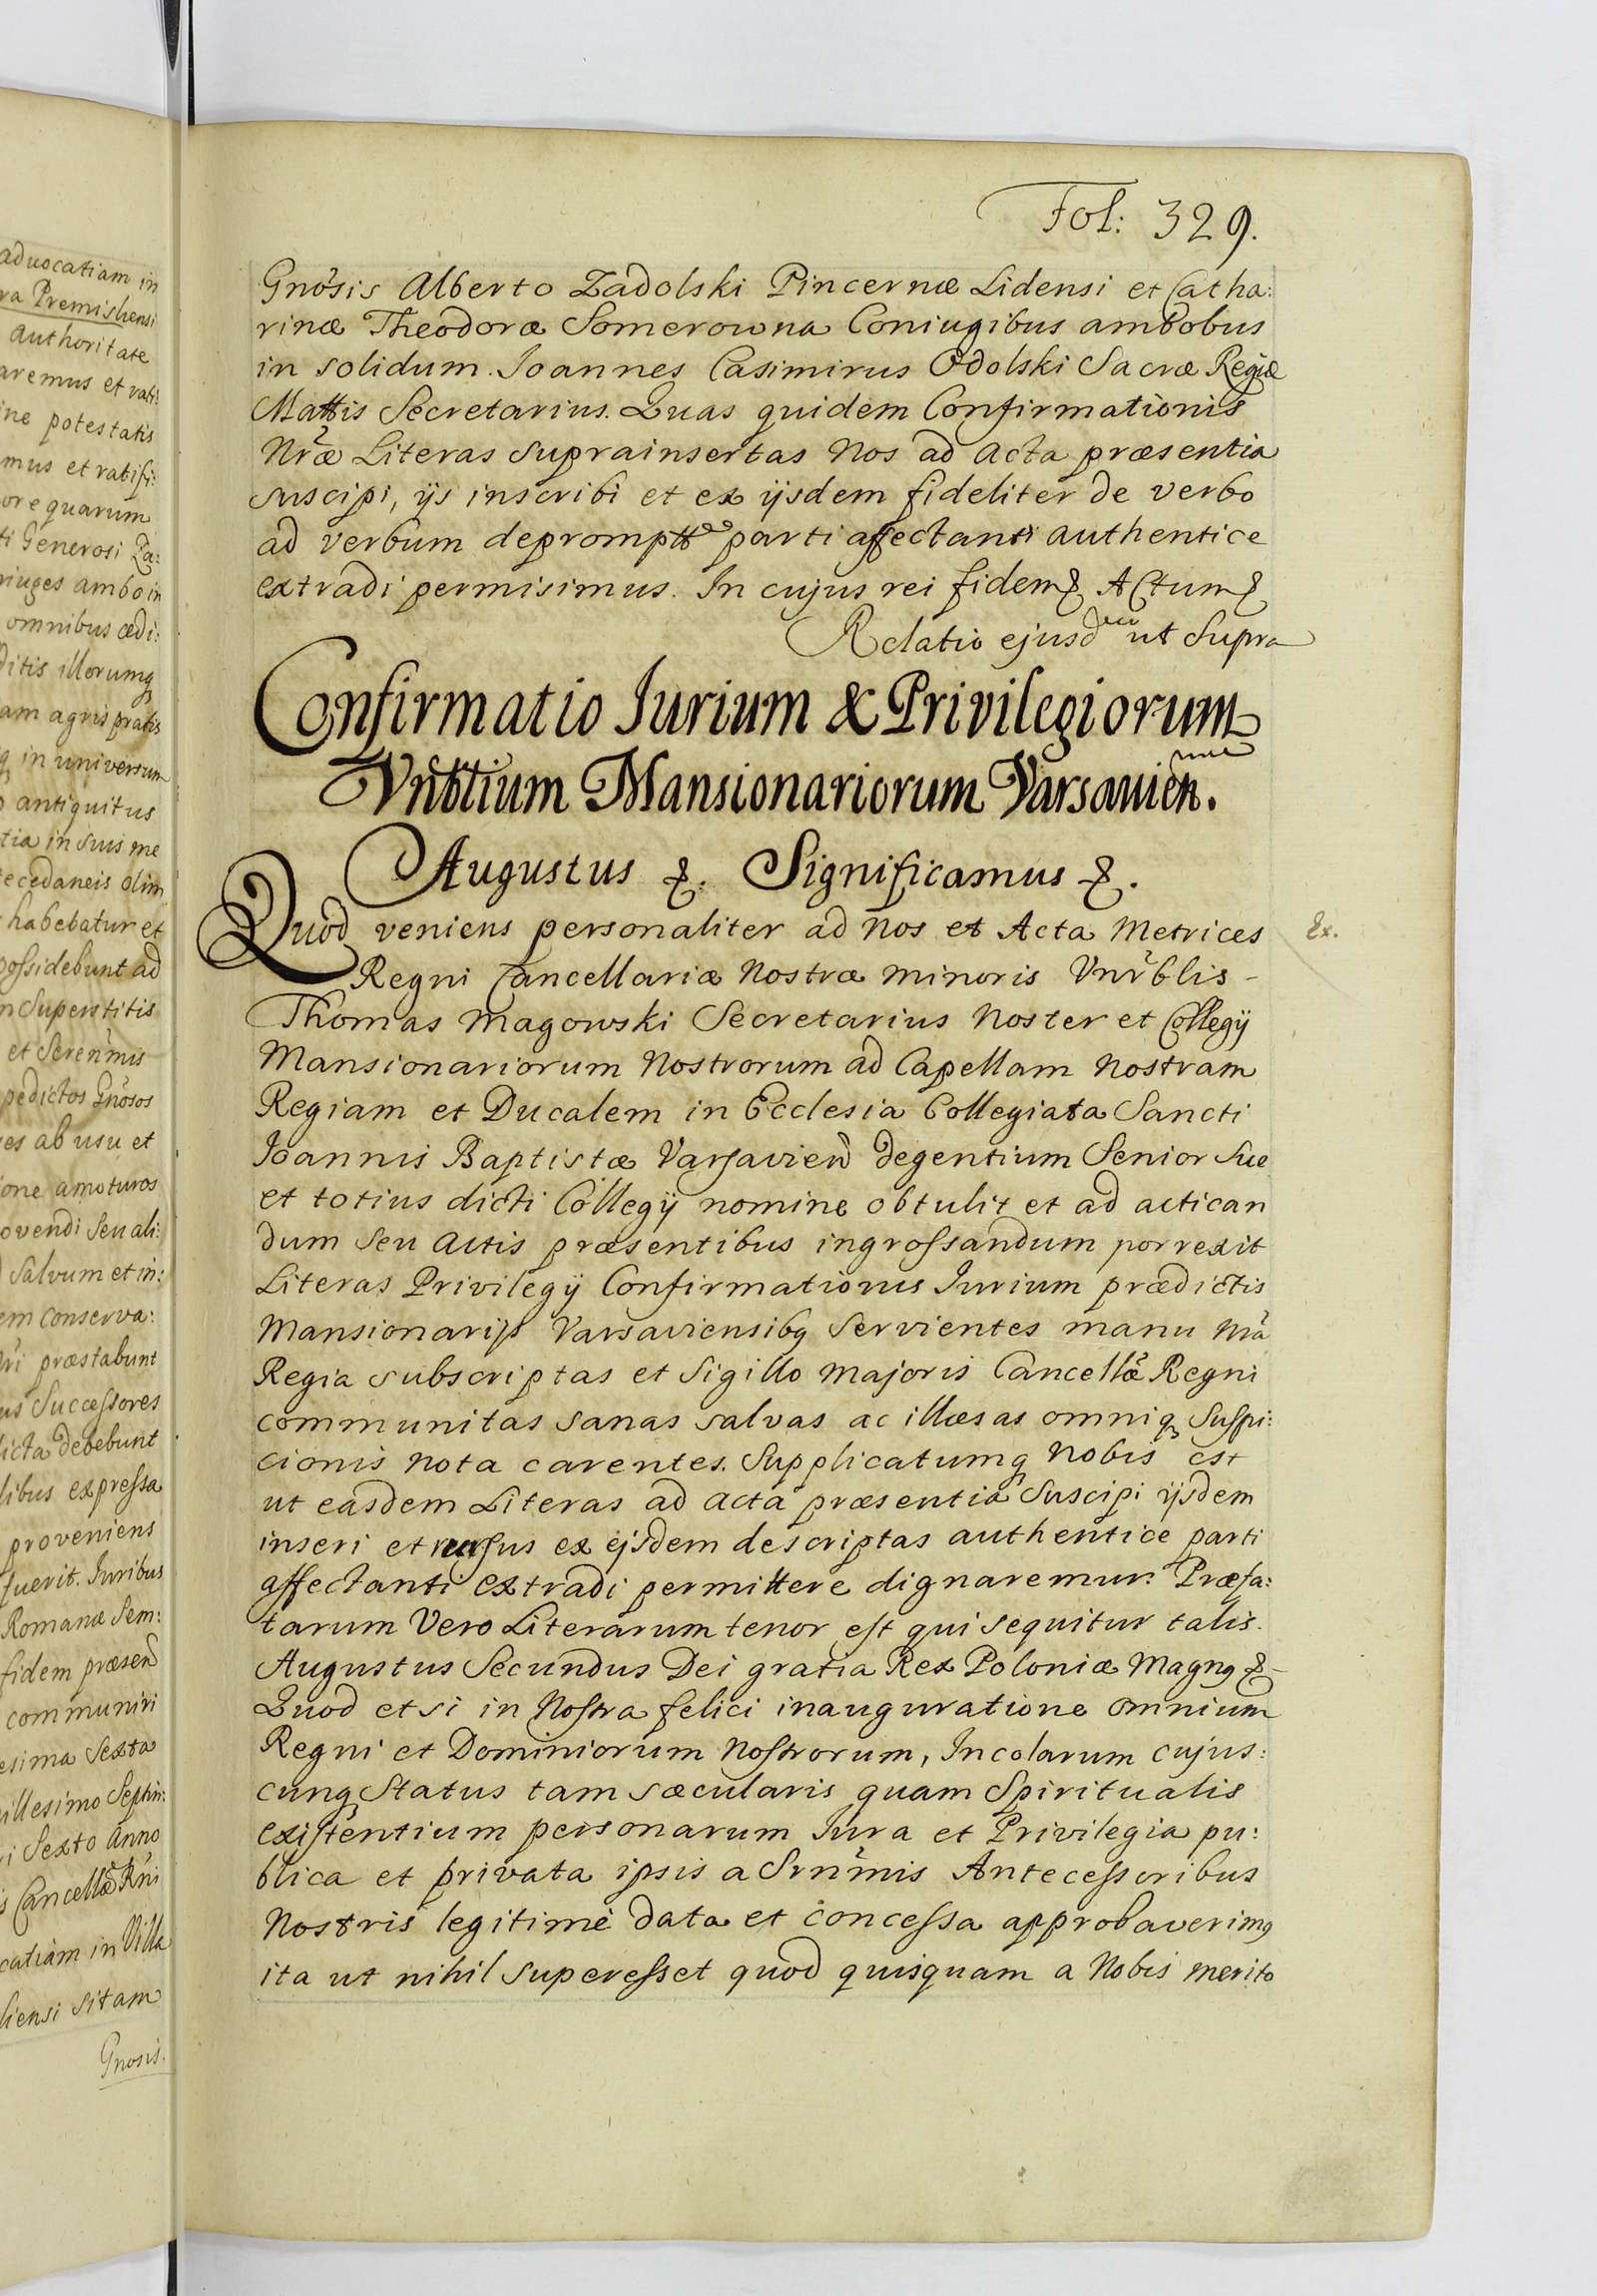 aduocatiam in
ra Premisliensi
authoritate
aremus et rati:
ine potestatis
mus et ratifi:
ore quarum
ti Generosi Za:
niuges ambo in
omnibus ædi:
ditis illorumq
am agris pratis
q in universum
antiquitus
tia in suis me
ecedaneis olim
habebatur et
possidebunt ad
n superstitis
et Seren̄mis
pedictos Gnosos
es ab usu et
ione amoturos
ovendi seu ali:
salvum et in:
em conserva:
ri præstabunt
us Successores
icta debebunt
libus expressa
proveniens
fuerit. Juribus
Romanæ Sem:
fidem præsen
communiri
esima Sexta
illesimo Septin:
i Sexto Anno
s Cancellæ Rni
catiam in Villa
liensi sitam
Gnosis.
Fol: 329.
Gnosis Alberto Zadolski Pincernæ Lidensi et Catha:
rinæ Theodoræ Somerowna Coniugibus ambobus
in solidum. Joannes Casimirus Odolski Sacræ Regiæ
Mattis Secretarius. Quas quidem Confirmationis
Nræ Literas suprainsertas Nos ad Acta præsentia
suscipi, ijs inscribi et ex ijsdem fideliter de verbo
ad verbum depromptas parti affectanti authentice
extradi permisimus. In cujus rei fidem &. Actum &.
Relatio ejusdem ut Supra
Confirmatio Jurium & Privilegiorum
Vnbtium Mansionariorum Varsavien.
Augustus &. Significamus &.
Quod veniens personaliter ad Nos et Acta Metrices
Ex.
Regni Cancellariæ Nostræ minoris Vnrblis -
Thomas Magowski Secretarius Noster et Collegij
Mansionariorum Nostrorum ad Capellam Nostram
Regiam et Ducalem in Ecclesia Collegiata Sancti
Joannis Baptistæ Varsavien degentium Senior sue
et totius dicti Collegij nomine obtulit et ad actican
dum seu Actis præsentibus ingrossandum porrexit
Literas Privilegij Confirmationis Jurium prædictis
Mansionarijs Varsaviensibq servientes manu Nrā
Regia subscriptas et sigillo majoris Cancellæ Regni
communitas sanas salvas ac illæsas omniq suspi:
cionis nota carentes. Supplicatumq Nobis est
ut easdem Literas ad acta præsentia suscipi ijsdem
inseri et rursus ex ejsdem descriptas authentice parti
affectanti extradi permittere dignaremur: Præfa:
tarum Vero Literarum tenor est qui sequitur talis.
Augustus Secundus Dei gratia Rex Poloniæ Magnq &-
Quod etsi in Nostra felici inauguratione omnium
Regni et Dominiorum Nostrorum, Incolarum cujus:
cunq Status tam sæcularis quam Spiritualis
existentium personarum Jura et Privilegia pu:
blica et privata ipsis a Srn̄mis Antecessoribus
Nostris legitimè data et concessa approbaverimq
ita ut nihil superesset quod quisquam a Nobis merito